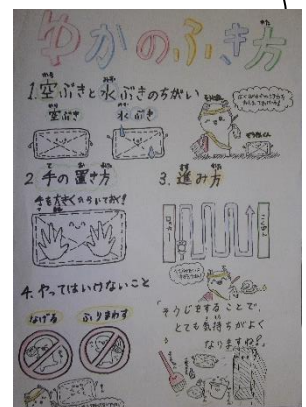 ゆかのふき方
1.空ぶきと水ぶきのちがい
空ぶき
水ぶき
2 手の置き方
手を大きくひらいておく!
3.進み方
4.やってはいけないこと
なげる
ふりまわす
そうじをすることで、
とても気持ちがよく
なりますね?